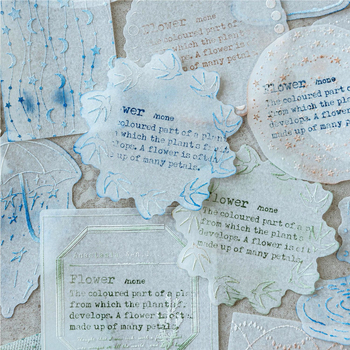 Flower /none
The coloured part of a
from which the plants
develops. A flower is
up of many petals.
Flower /none
The coloured part of a
from which the plants f
develops. A flower is often
made up of many petals.
ower /none
coloured part of a plan
which the plants f
A flower is often
up of many petals.
Flower /none
The coloured part of a plan
from which the plants
develops. A flower is oft
made up of many petals.
Flower /none
The coloured part of a
from which the plants f
develops. A flower is oft
made up of many petals.